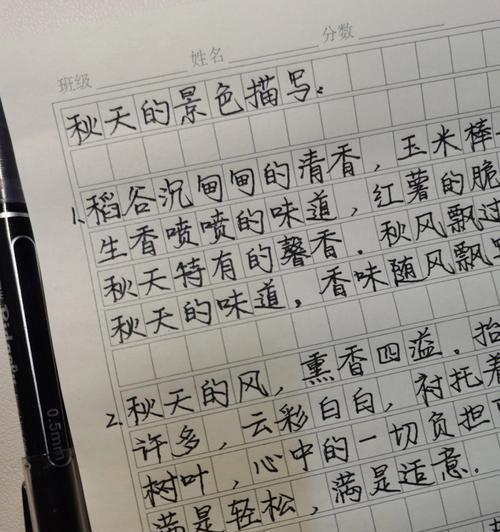 班级 姓名 分数
秋天的景色描写:
1. 稻谷沉甸甸的清香，玉米棒
生香喷喷的味道，红薯的脆
秋天特有的馨香．秋风飘过
秋天的味道，香味随风飘
2. 秋天的风，熏香四溢．抬
许多，云彩白白，衬托着
树叶，心中的一切负担
满是轻松，满是适意．
0.5mm